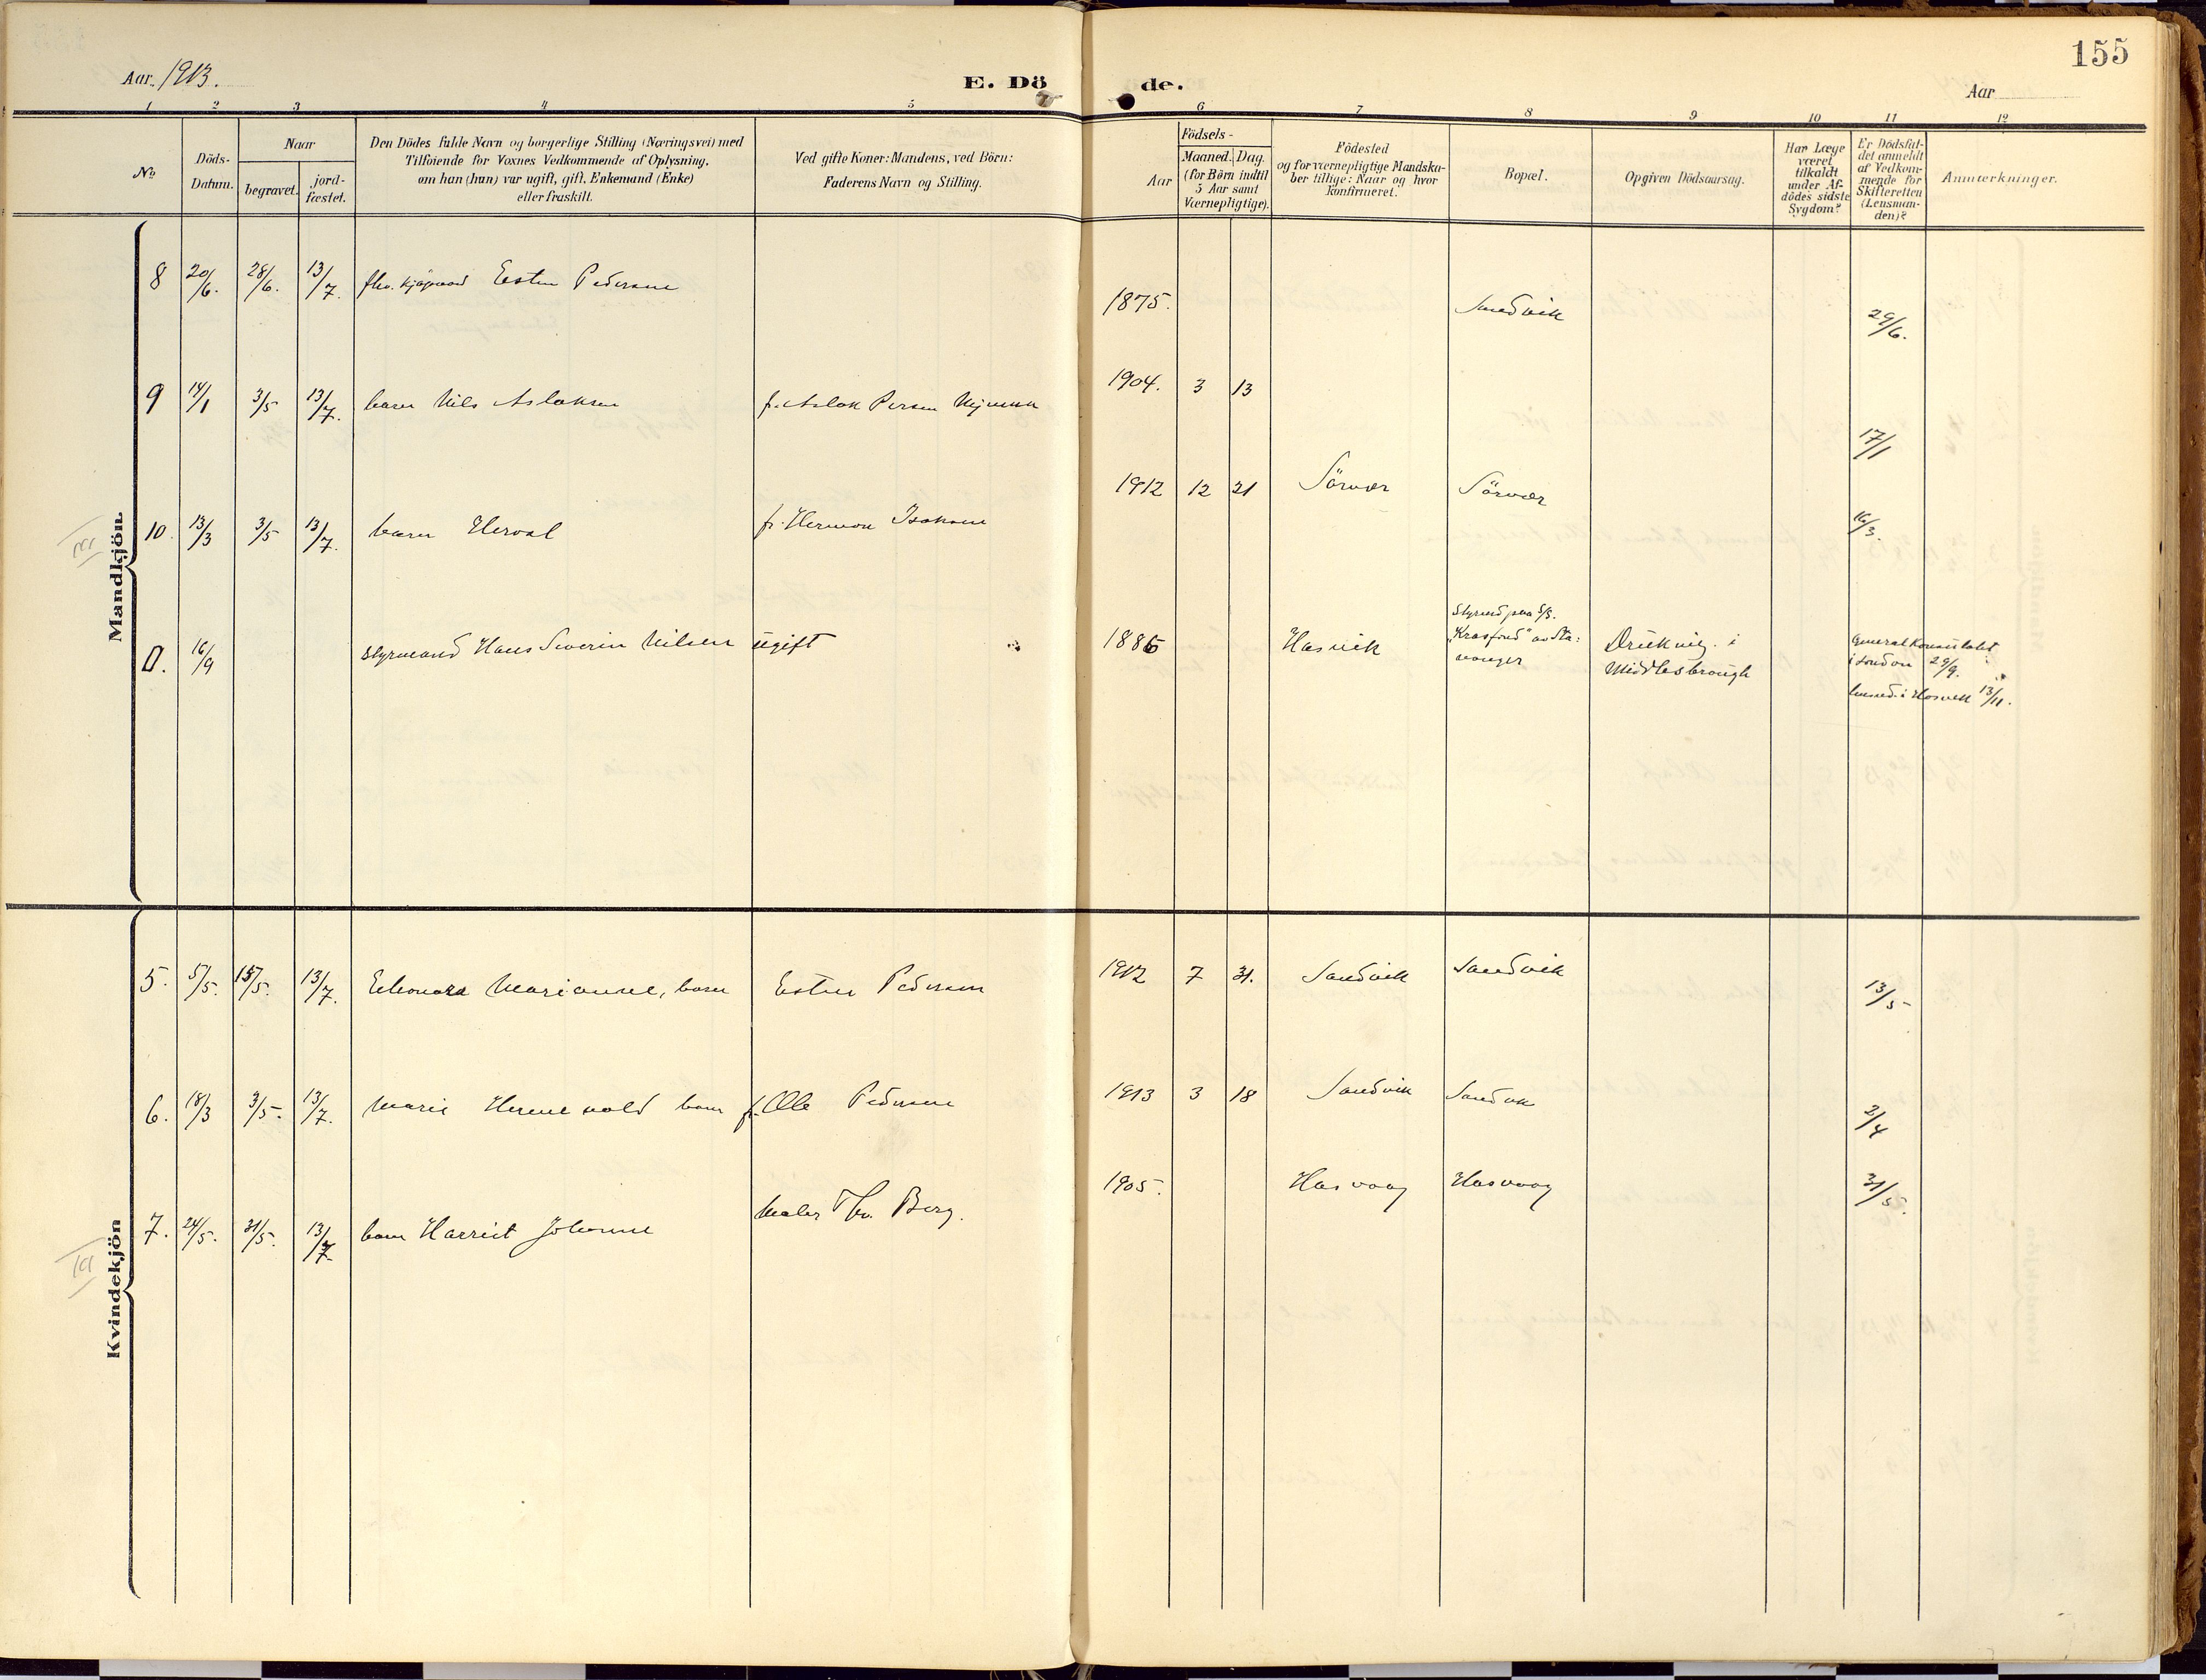 155
Aar. 1913.
E. Dö de.
Aar
1 2 3 4 5 6 7 8 9 10 11 12
No
Döds-
Datum.
Naar
begravet.
jord-
fæstet.
Den Dödes fulde Navn og borgerlige Stilling (Næringsvei) med
Tilföiende for Voxnes Vedkommende af Oplysning,
om han (hun) var ugift, gift, Enkemand (Enke)
eller fraskilt.
Ved gifte Koner: Mandens, ved Börn:
Faderens Navn og Stilling.
Födsels-
Aar
Maaned. Dag.
(for Börn indtil
5 Aar samt
Værnepligtige).
Födested
og for værnepligtige Mandska-
ber tillige: Naar og hvor
konfirmeret.
Bopæl.
Opgiven Dödsaarsag.
Har Læge
været
tilkaldt
under Af-
dödes sidste
Sygdom?
Er Dödsfal-
det anmeldt
af Vedkom-
mende for
Skifteretten
(Lensman-
den)?
Anmærkninger.
Mandkjön.
8 20/6. 28/6. 13/7. Esten Pedersen 1875. Sandvik 29/6.
9 14/1 3/5 13/7. barn Nils Aslaksen f. Aslak Persen 1904. 3 13 17/1
10. 13/3 3/5 13/7. barn Herval f. Herman Isaksen 1912 12 21 Sörvær Sörvær 16/3.
0. 16/9 Styrmand Hans Severin Nilsen ugift 1886 Hasvik
Styrmd paa S/S.
av Sta:
vanger
Drukning i
Middlesbrough
Generalkonsulatet
i London 29/9.
Hasvik 13/11.
Kvindekjön
5. 5/5. 15/5. 13/7. Eleonora Marianne, barn Esten Pedersen 1912 7 31. Sandvik Sandvik 13/5
6. 18/3 3/5. 13/7. Marie barn f. Ole Pedersen 1913 3 18 Sandvik Sandvik 2/4
7. 24/5. 31/5. 13/7. barn Harriet Johanne Maler Th. Berg. 1905. Hasvaag Hasvaag 31/5.